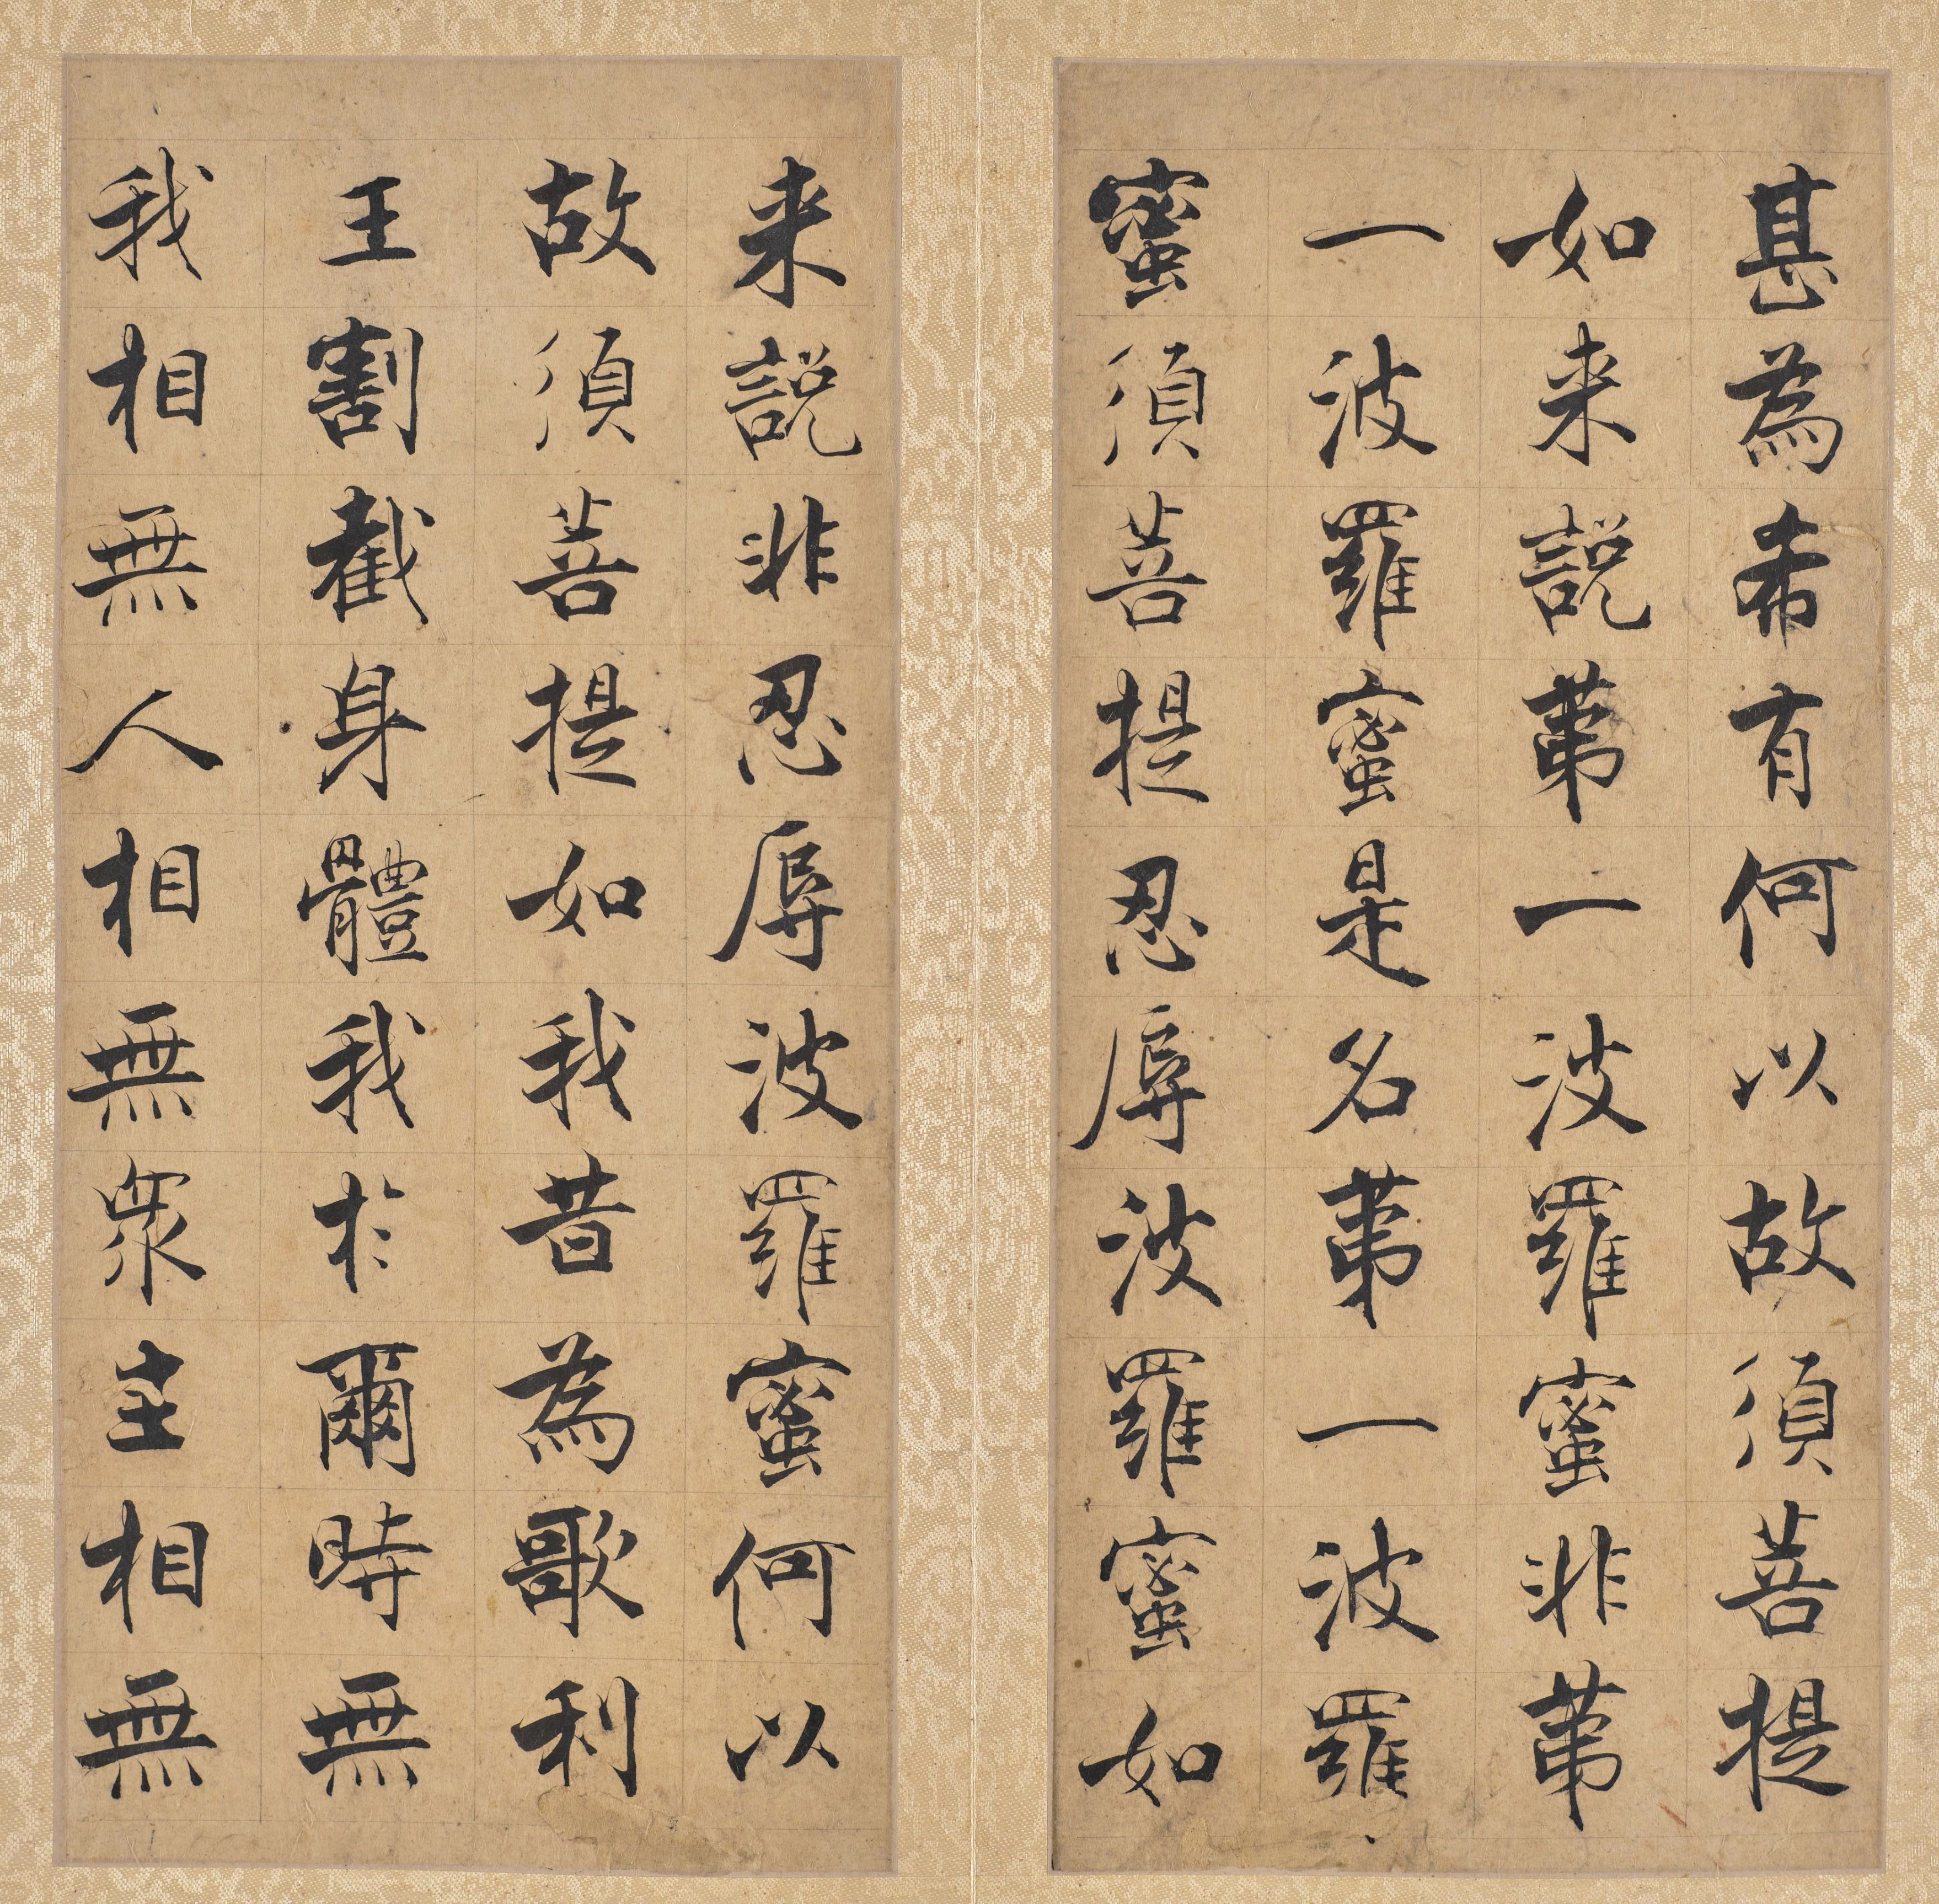 甚為希有何以故須菩提
如来說苐一波羅蜜非苐
一波羅蜜是名苐一波羅
蜜須菩提忍辱波羅蜜如
来說非忍辱波羅蜜何以
故須菩提如我昔為歌利
王割截身體我於爾時無
我相無人相無眾生相無